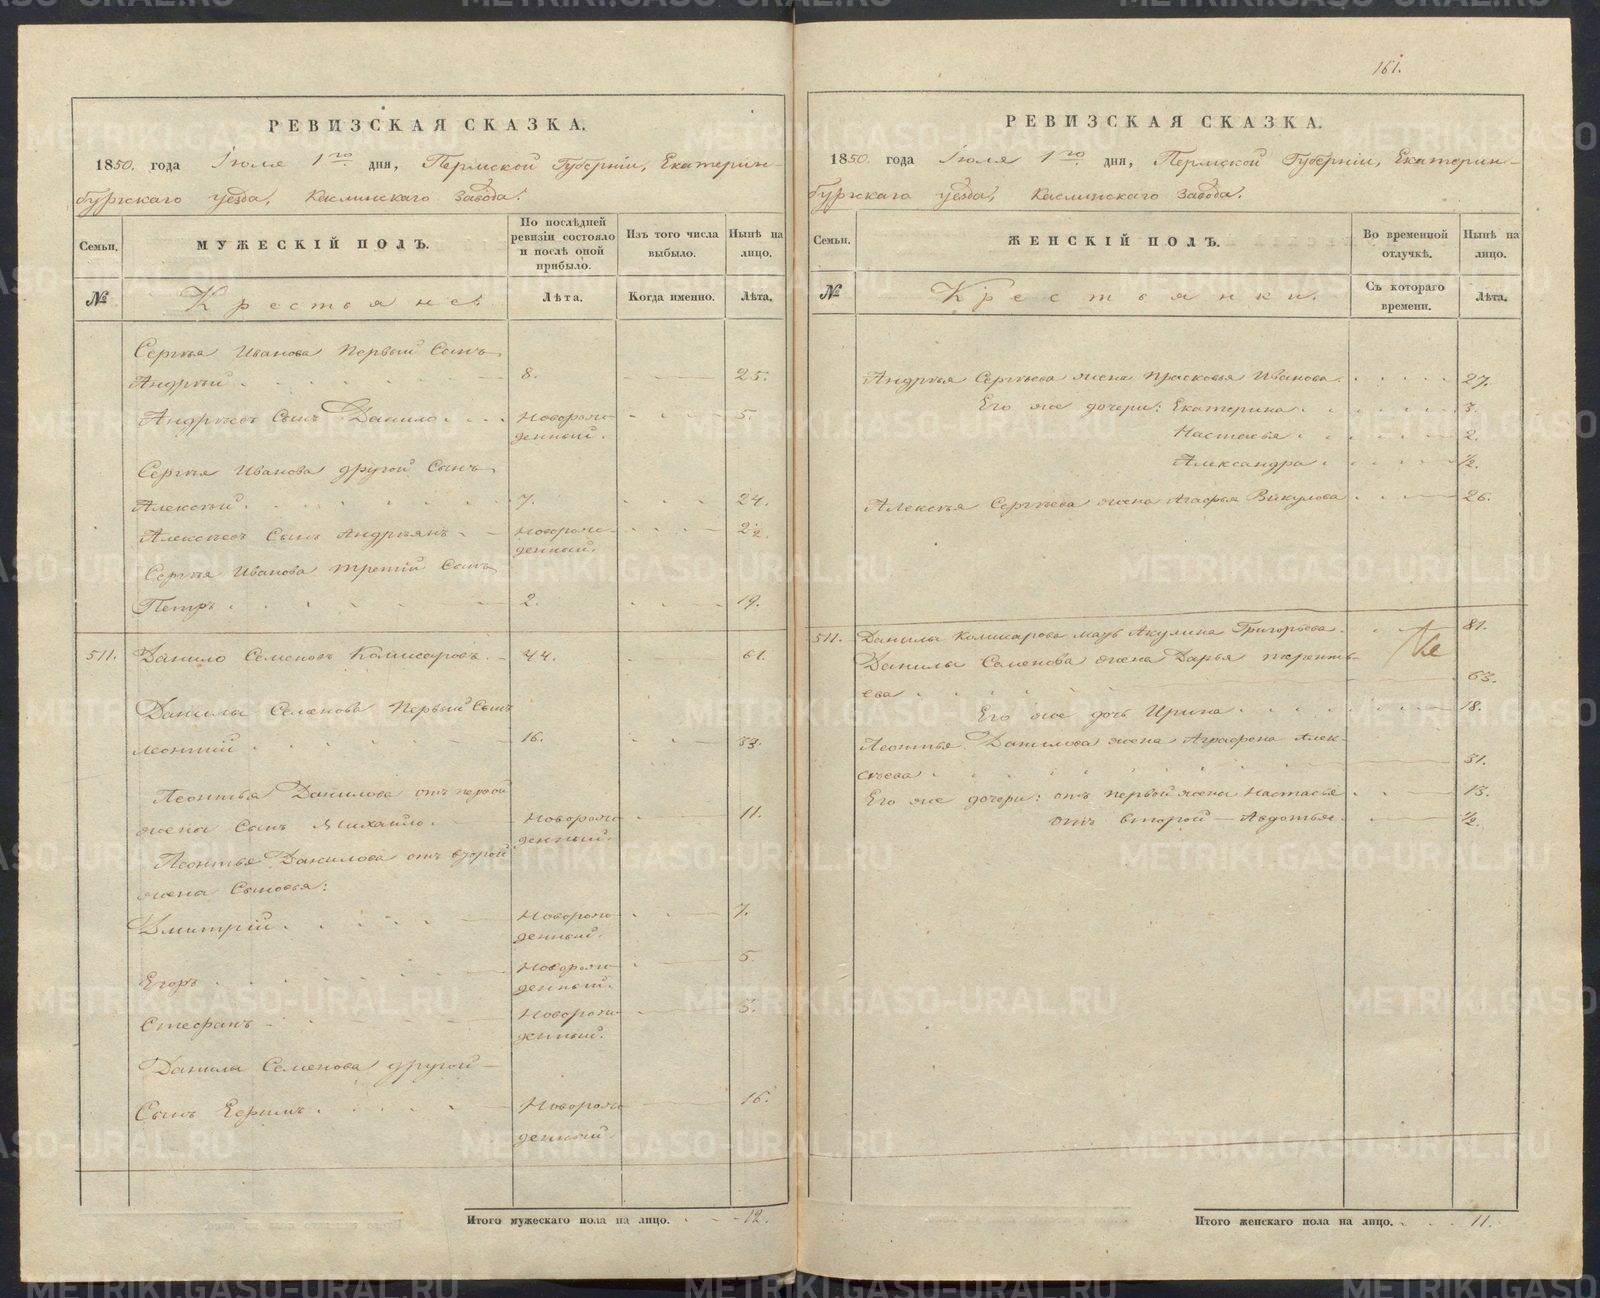 РЕВИЗСКАЯ СКАЗКА.
1850. года Іюля 1го дня, Пермской Губерніи, Екатерин-
бургскаго уезда, Каслинскаго завода.
Семьи.
МУЖЕСКІЙ ПОЛЪ.
По послѣдней ревизіи состояло и послѣ оной прибыло.
Изъ того числа выбыло.
Нынѣ на лицо.
№
Крестьяне.
Лѣта.
Когда именно.
Лѣта.
Сергѣя Иванова первый сынъ
Андрѣй 8. 25.
Андрѣевъ сынъ Данило Новорож- 5.
денный.
Сергѣя Иванова другой сынъ
Алексѣй 7. 24.
Алексѣевъ сынъ Андрѣянъ Новорож- 2½.
денный.
Сергѣя Иванова третій сынъ
Петръ 2. 19.
511. Данило Семеновъ Комисаровъ 44. 61.
Данилы Семенова первый сынъ
Леонтий 16. 33.
Леонтья Данилова отъ первой
жены сынъ Михайло. Новорож- 11.
денный.
Леонтья Данилова отъ второй
жены сыновья:
Дмитрій Новорож- 7.
денный.
Егоръ Новорож- 5.
денный.
Стефанъ Новорож- 3.
денный.
Данилы Семенова другой
сынъ Ефимъ Новорож- 16.
денный.
Итого мужескаго пола на лицо. 12.
161.
РЕВИЗСКАЯ СКАЗКА.
1850. года Іюля 1го дня, Пермской Губерніи, Екатерин-
бургскаго уезда, Каслинскаго завода.
Семьи.
ЖЕНСКІЙ ПОЛЪ.
Во временной отлучкѣ.
Нынѣ на лицо.
№
Крестьянки.
Съ котораго времени.
Лѣта.
Андрѣя Сергѣева жена Прасковья Иванова 27.
Его же дочери: Екатерина 3.
Настасья 2.
Александра ½.
Алексѣя Сергѣева жена Агафья Викулова 26.
511. Данилы Комисарова мать Акулина Григорьева 81.
Данилы Семенова жена Дарья
ева 63.
Его же дочь Ирина 18.
Леонтья Данилова жена Аграфена Алек-
сѣева 31.
Его же дочери: отъ первой жены Настасья 13.
отъ второй — Авдотья ½.
Итого женскаго пола на лицо. 11.
METRIKI.GASO-URAL.RU